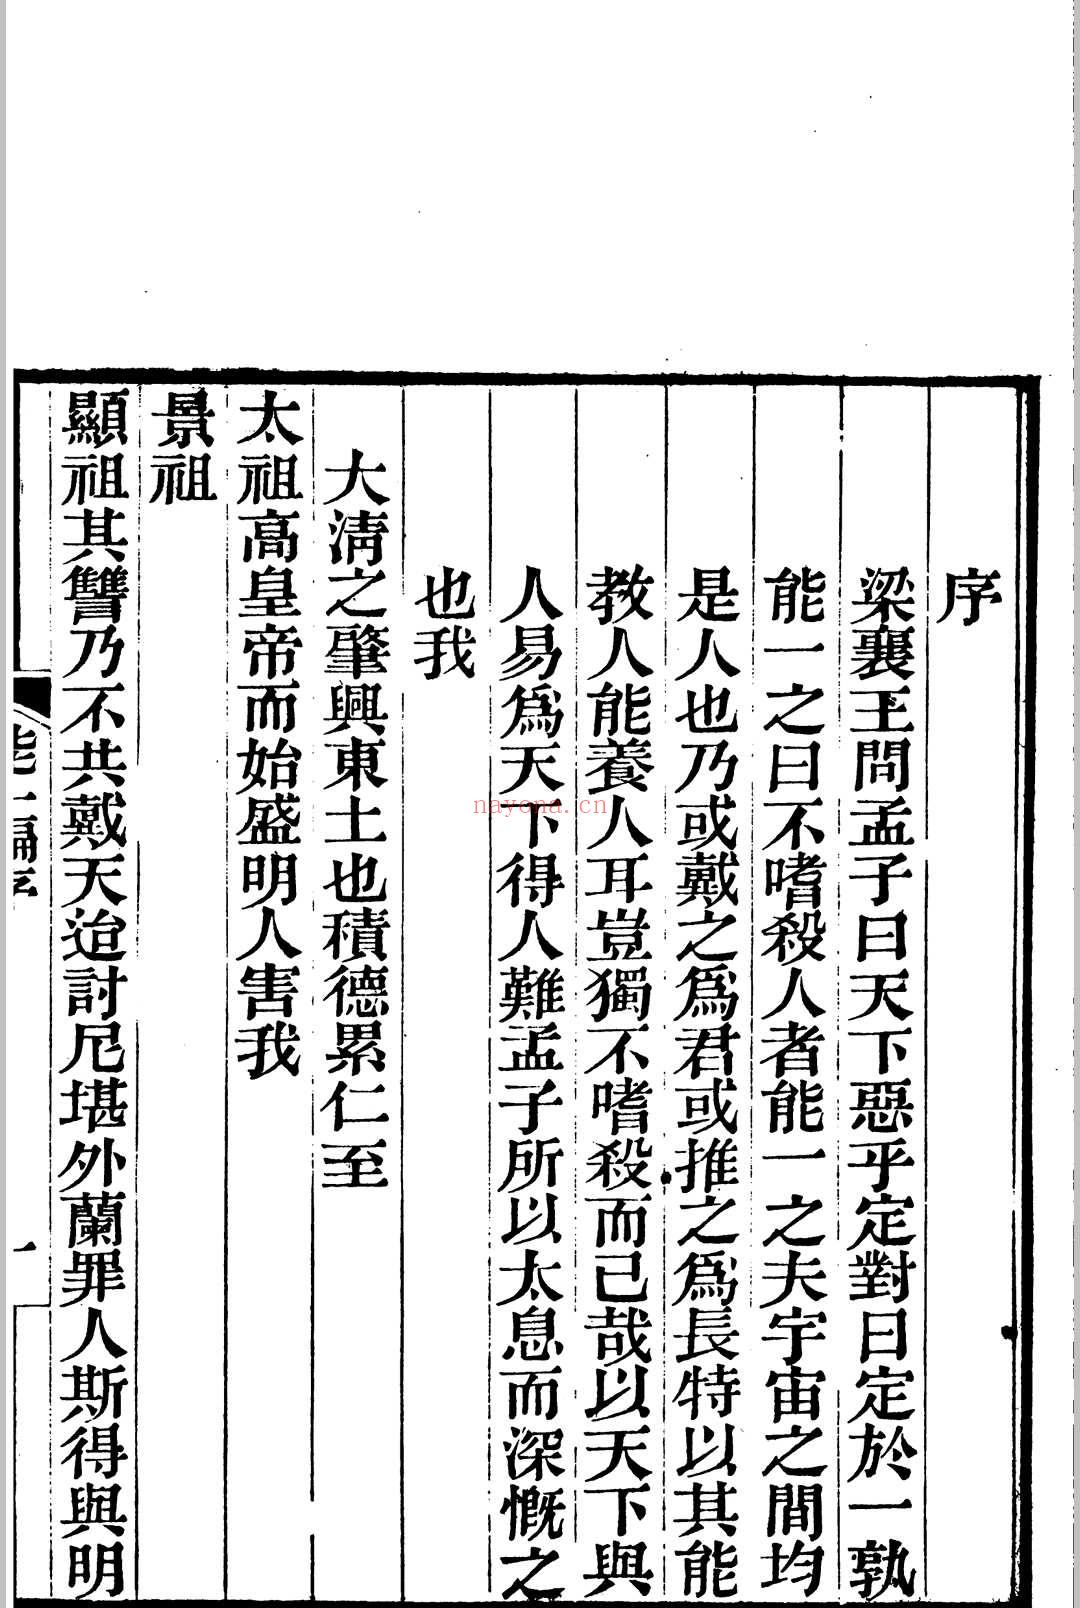 序
梁襄王問孟子曰天下惡乎定對曰定於一孰
能一之曰不嗜殺人者能一之夫宇宙之間均
是人也乃或戴之爲君或推之爲長特以其能
教人能養人耳豈獨不嗜殺而已哉以天下與
人易爲天下得人難孟子所以太息而深慨之
也我
大淸之肇興東土也積德累仁至
太祖高皇帝而始盛明人害我
景祖
顯祖其讐乃不共戴天迨討尼堪外蘭罪人斯得與明
能一編序
一
nayona.cn